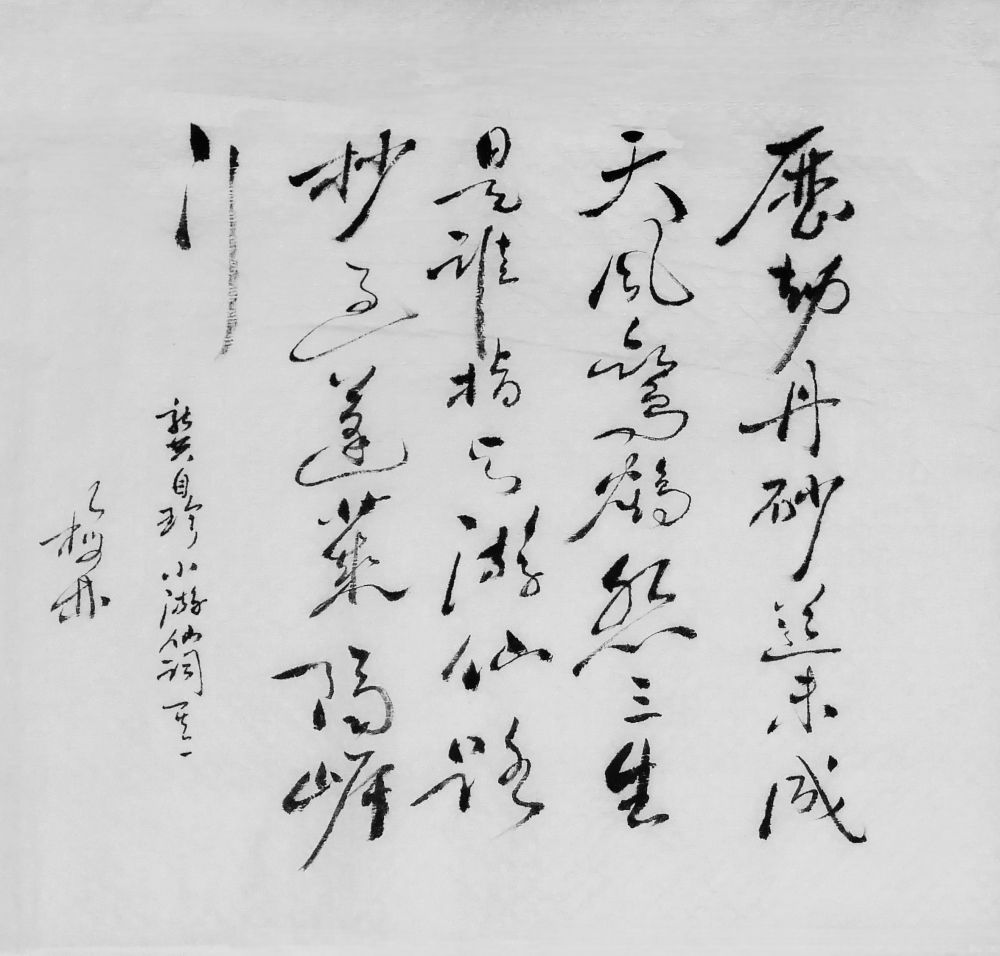 歷劫丹砂道未成
天風鸞鶴怨三生
是誰指与游仙路
抄過蓬萊隔岸
行
龔自珍小游仙詞其一